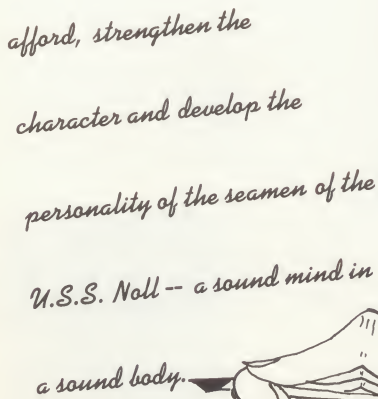 afford, strengthen the
character and develop the
personality of the seamen of the
U.S.S. Noll -- a sound mind in
a sound body.